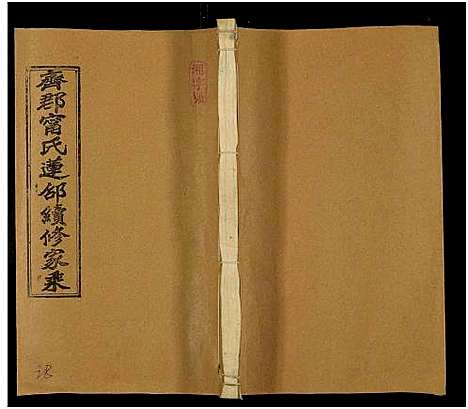 齊郡甯氏蓮邵續修家乘